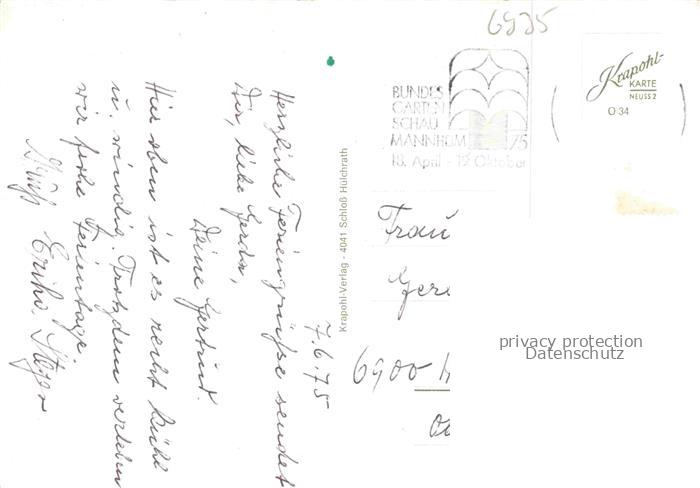 7.6.75
Herzliche Feriengrüße sendet
Dir, liebe Gerda,
Deine Gertrud.
Hier oben ist es recht kühl
u. windig. Trotzdem verleben
wir frohe Ferientage
Gruß Erika
Krapohl-Verlag - 4041 Schloß Hülchrath
6935
BUNDES
GARTEN
SCHAU
MANNHEIM 75
18. April - 19. Oktober
Krapohl-
KARTE
NEUSS 2
O 34
Frau
Ger
6900 h
privacy protection
Datenschutz